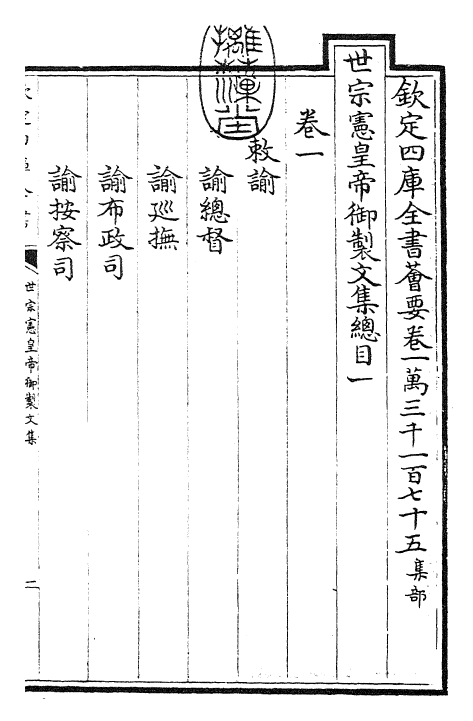 欽定四庫全書薈要卷一萬三千一百七十五集部
世宗憲皇帝御製文集總目一
卷一
敕諭
諭總督
諭巡撫
諭布政司
諭按察司
世宗憲皇帝御製文集
摛藻堂